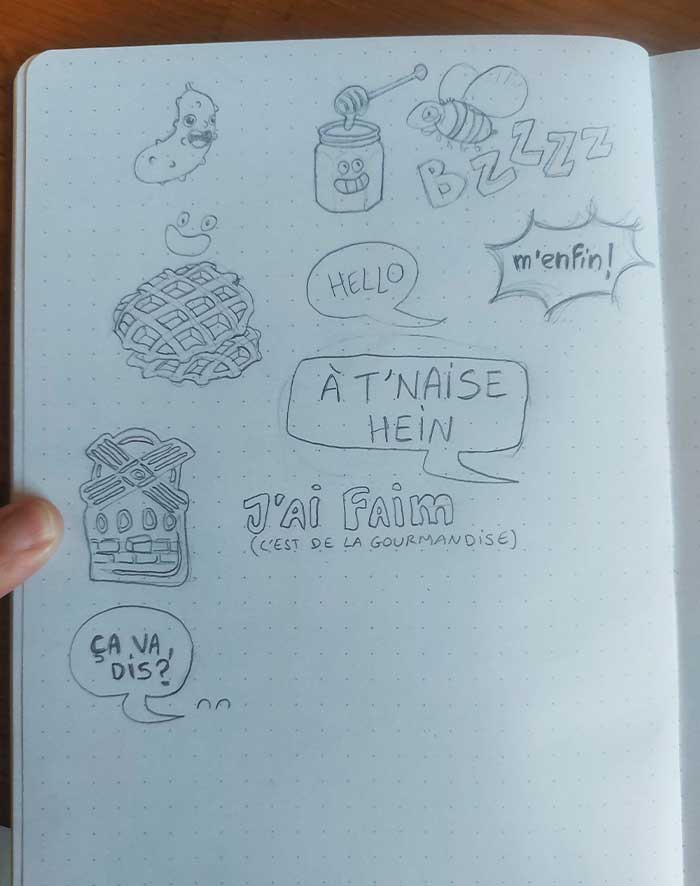 BZZZZ
m'enfin!
HELLO
À T'NAiSE
HEiN
J'Ai FAim
(C'EST DE LA GOURMANDiSE)
ÇA VA,
DiS?